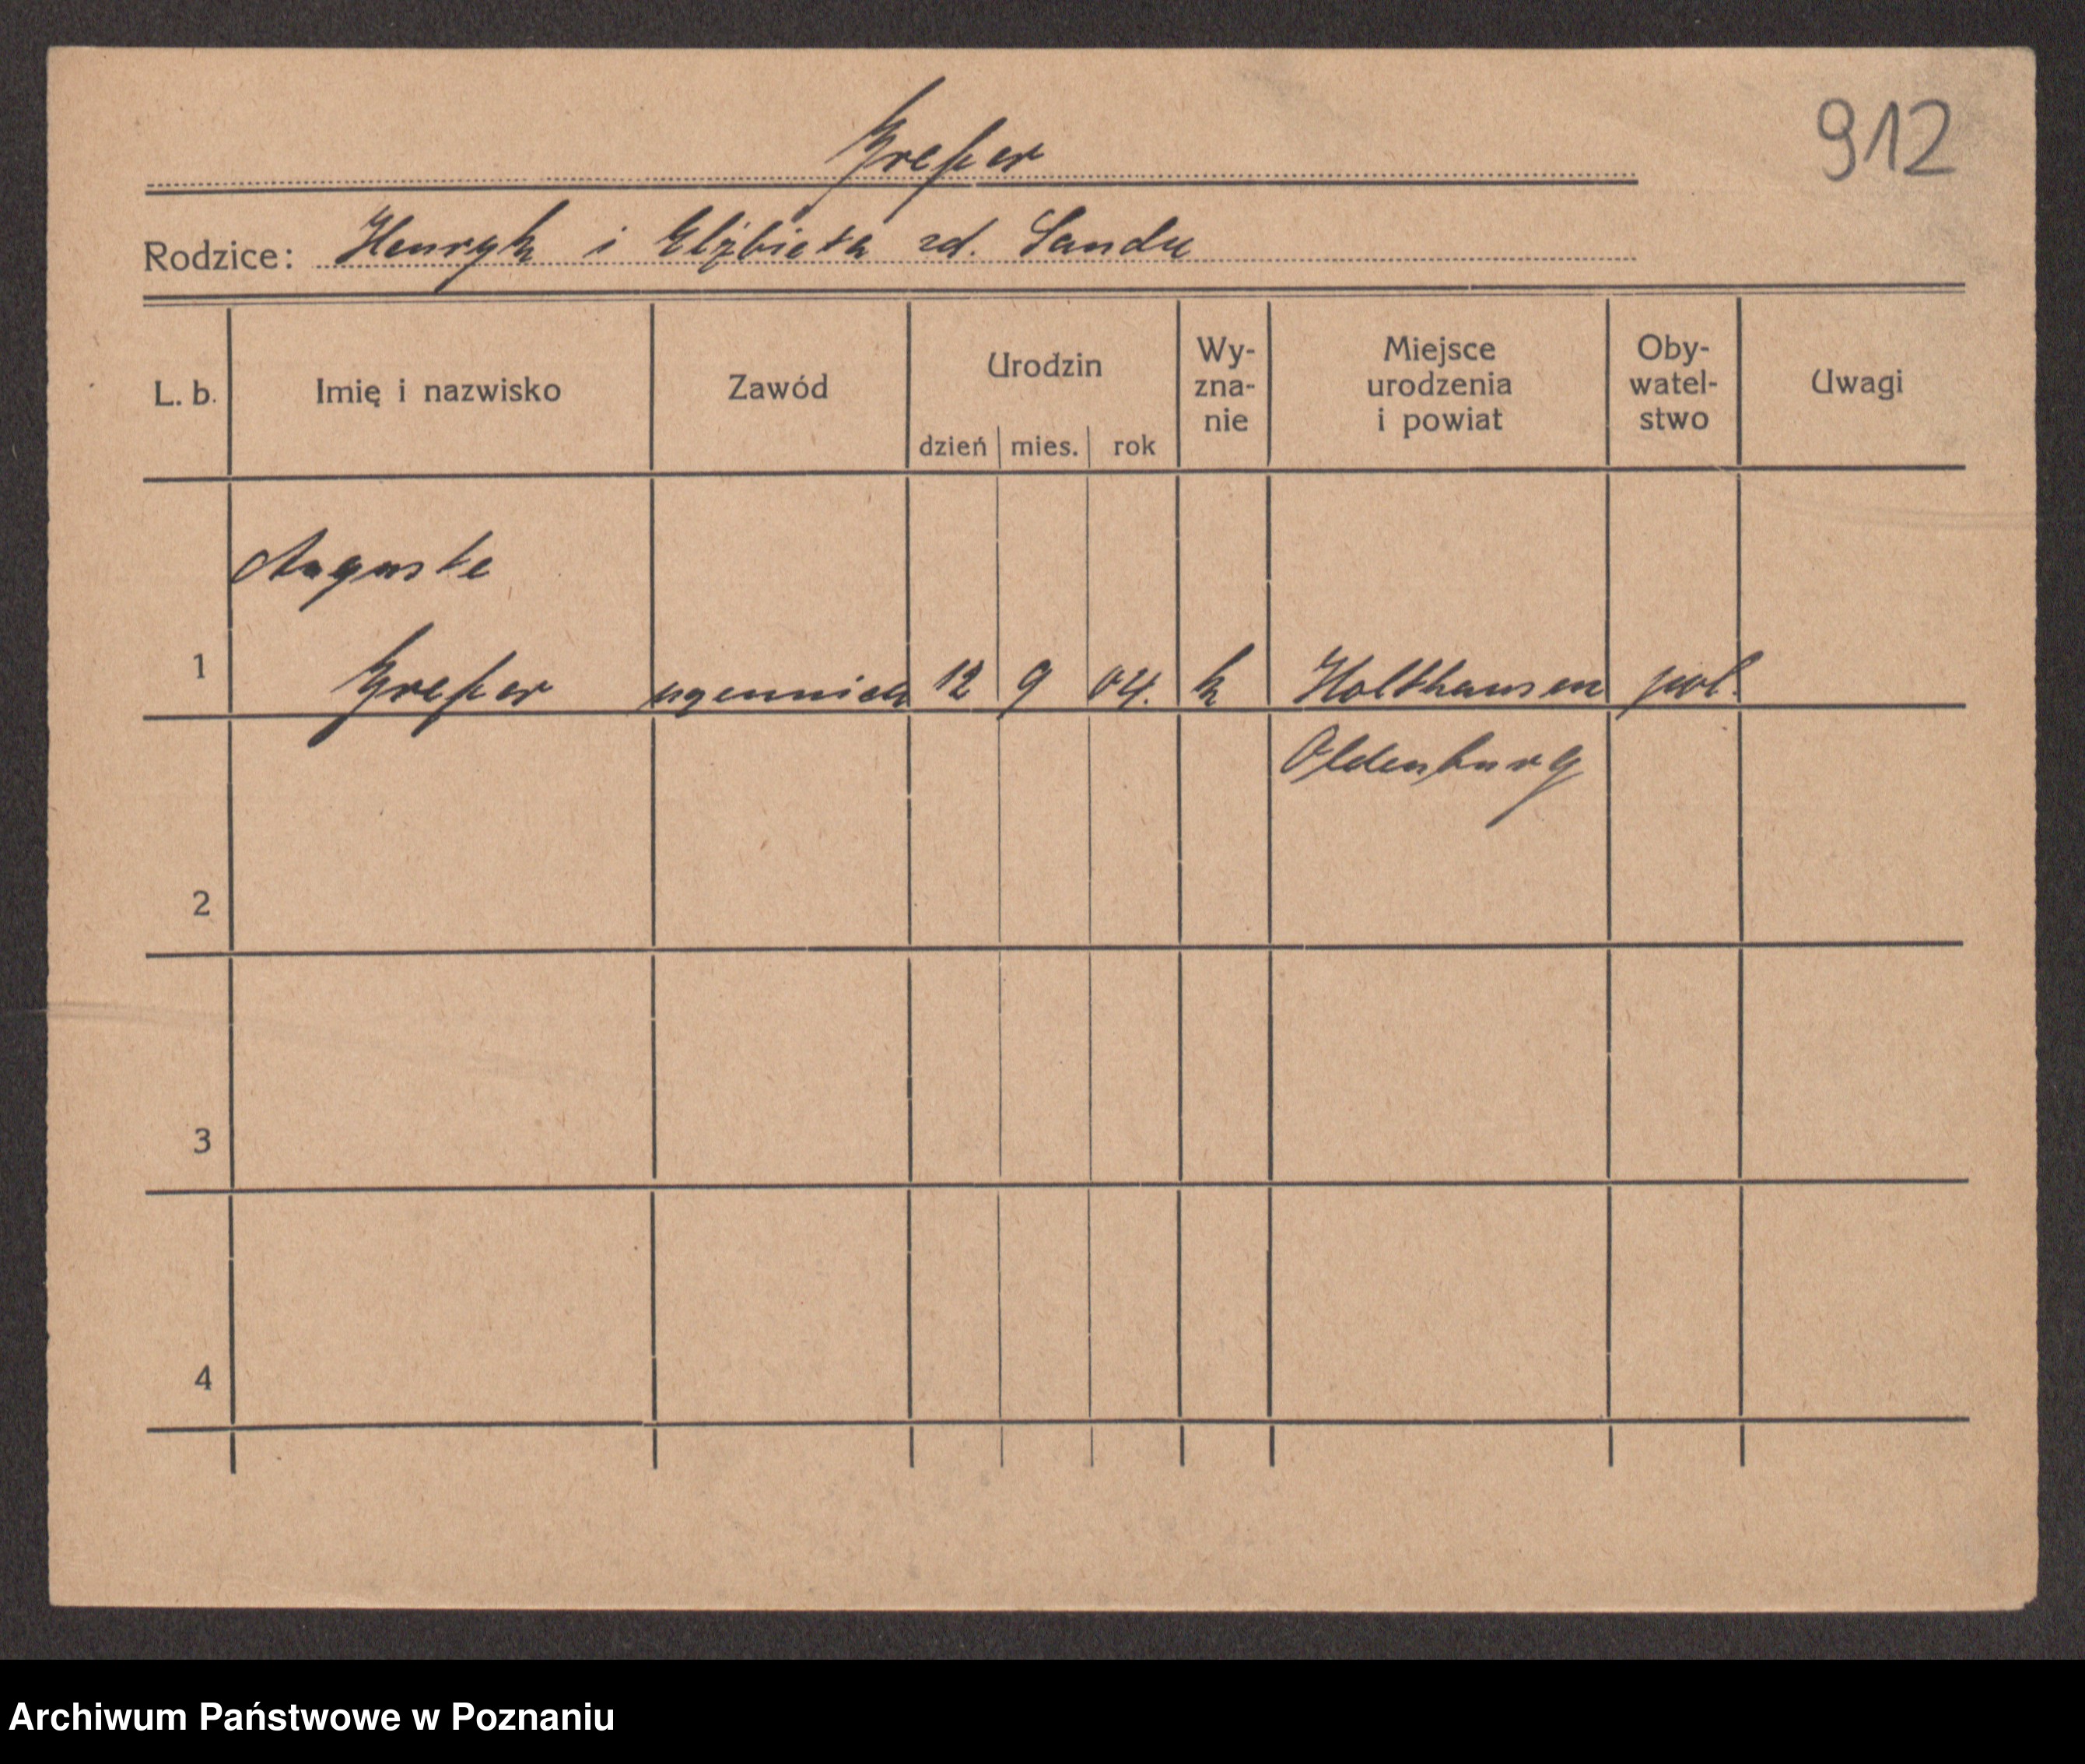 912
Greßer
Rodzice: Henryk i Elżbieta zd. Sandu
L. b. Imię i nazwisko Zawód Urodzin dzień mies. rok Wy-zna-nie Miejsce urodzenia i powiat Oby-watel-stwo Uwagi
Auguste
1 Greßer 12 9 04. k Holthausen pol.
Oldenburg
2
3
4
Archiwum Państwowe w Poznaniu